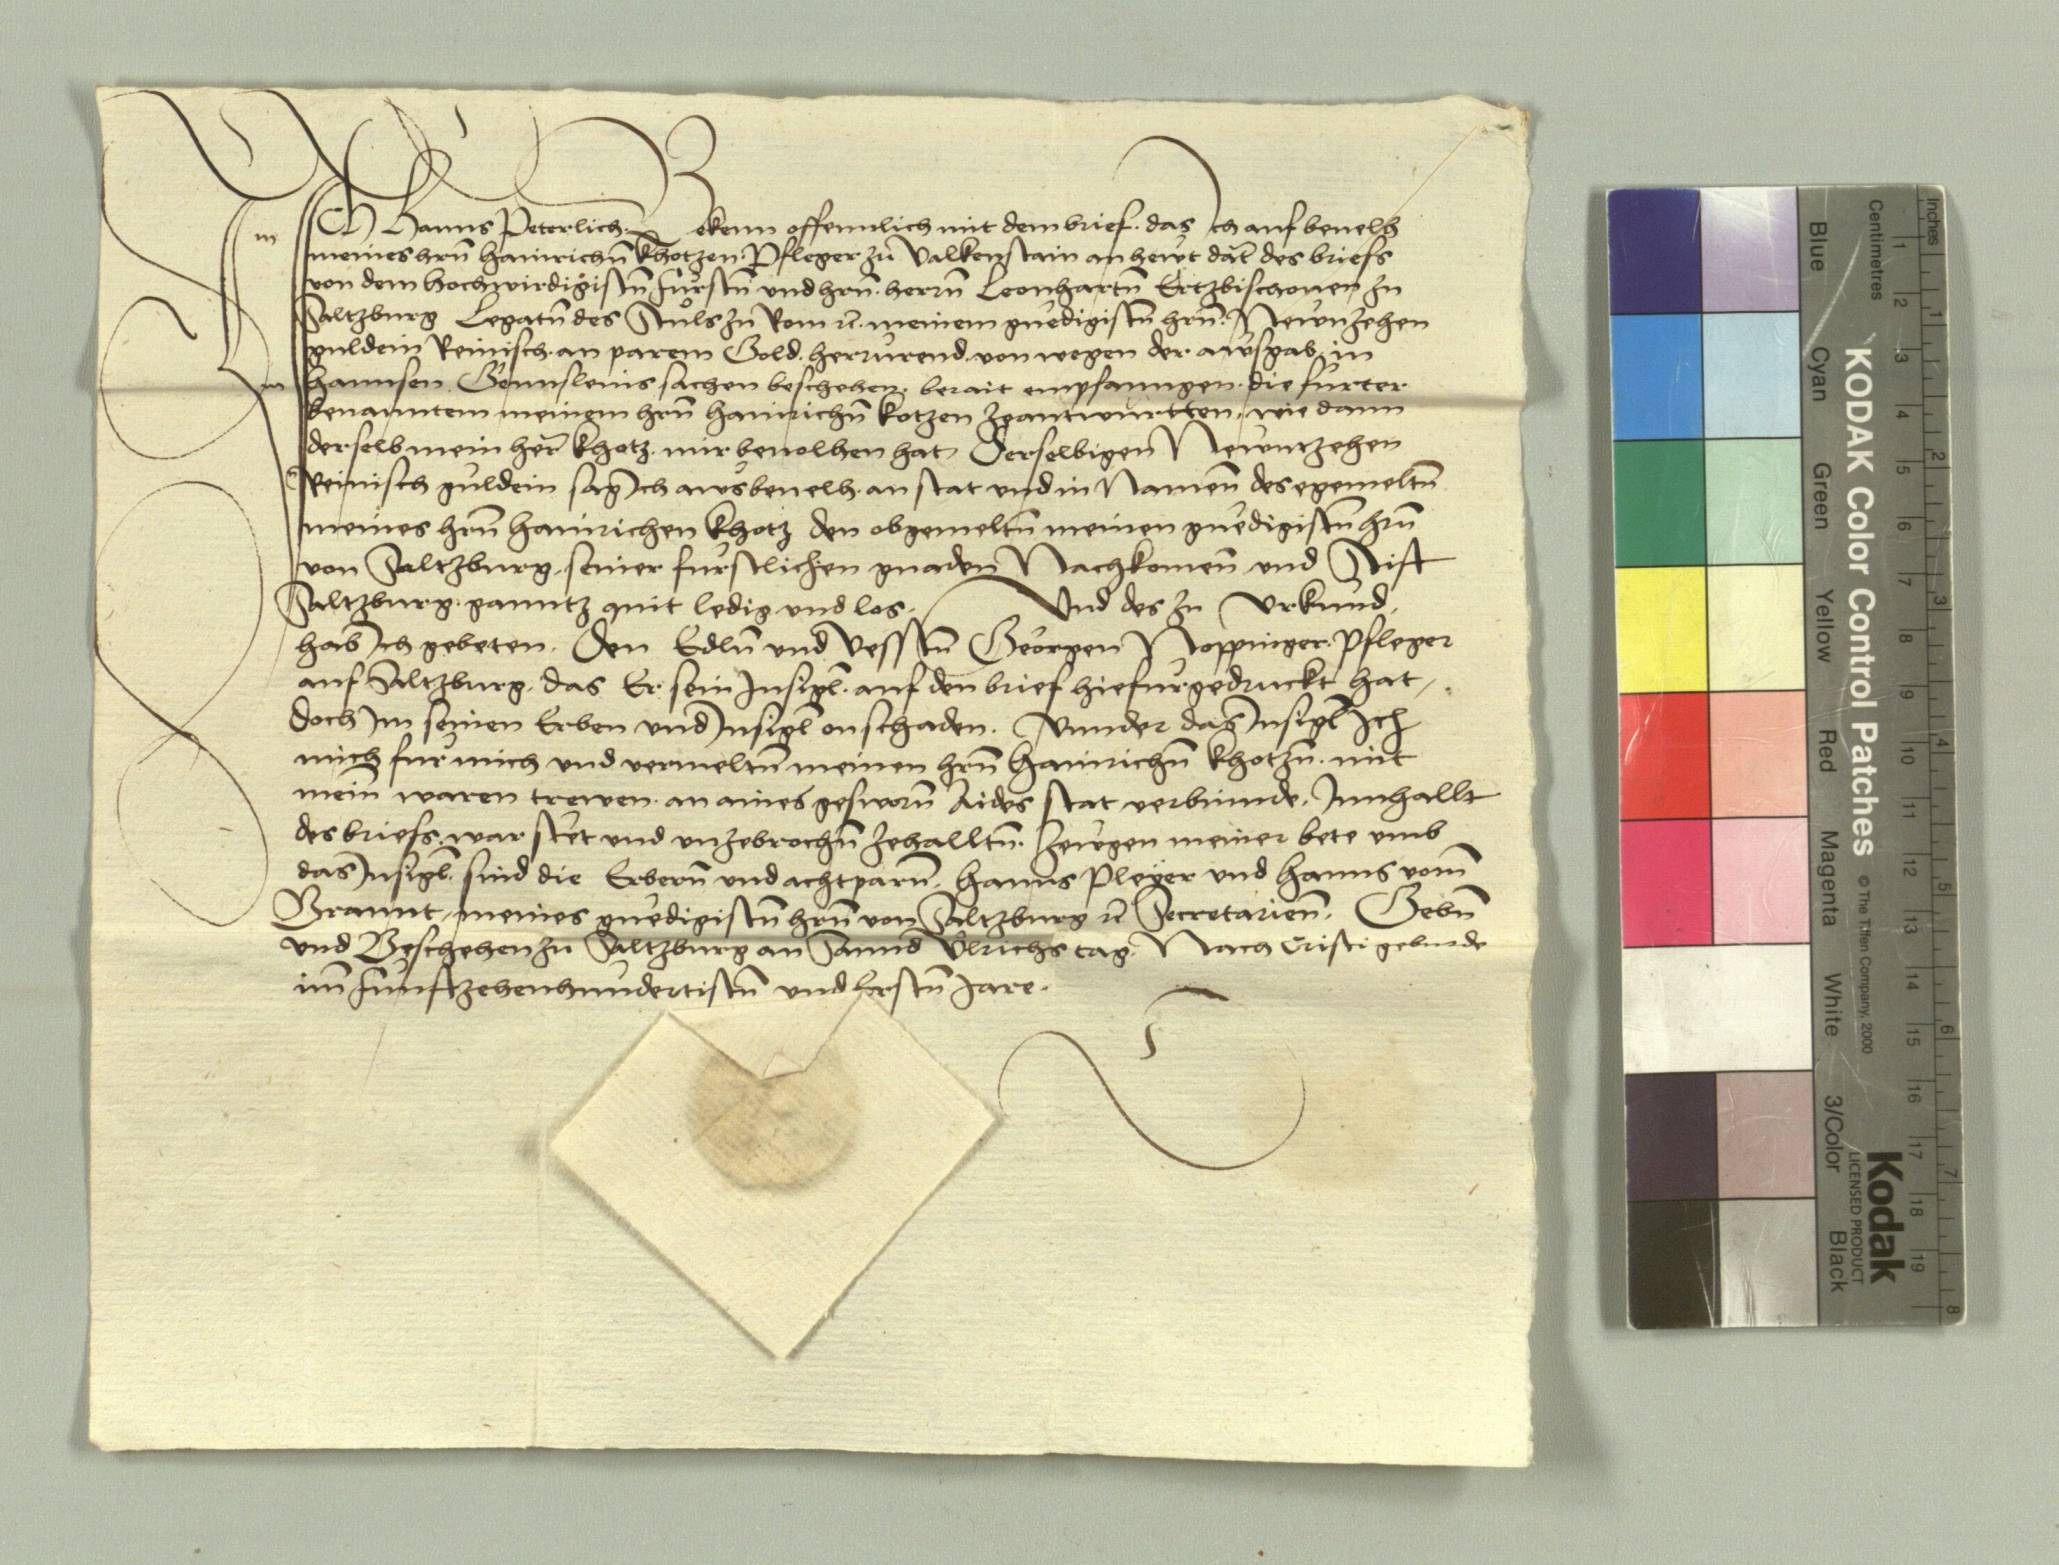 Ich Hanns Peterlich. Bekenn offennlich mit dem brief. das Ich auf beuelh
meines hrn̄ Hainrichn̄ Khotzen Pfleger zu Valkenstain an hewt dat̄ des briefs
von dem hochwirdigistn̄ fürstn̄ und hrn̄. herrn̄ Leonhartn̄ Ertzbischouen zu
Saltzburg Legatn̄ des Stuls zu Rom rc̄. meinem gnedigistn̄ hrn̄. Newnzehen
guldein Reinisch. an parem Gold. herrürend von wegen der awsgab in
Hannsen sachen beschehen. berait empfanngen. die fürter
benanntem meinem hrn̄ Hainrichn̄ Kotzen zeantwurtten. wie dann
derselb mein her̄ Khotz. mir beuolhen hat Derselbigen Newnzehen
Reinisch guldein sag Ich aws beuelh. an stat und in Namen̄ des egemeltn̄
meines hrn̄ Hainrichen Khotz den obgemeltn̄ meinen gnedigistn̄ hrn̄
von Saltzburg. seiner fürstlichen gnaden Nachkomen̄ und Stift
Saltzburg. ganntz quit ledig und los. Und des zu Urkund.
hab Ich gebeten. Den Edln̄ und Vesstn̄ Georgen Noppinger. Pfleger
auf Saltzburg. das Er sein Insigl. auf den brief hiefur gedruckt hat.
doch Im seinen Erben und Insigl on schaden. Vnnder das Insigl Ich
mich für mich und vermeltn̄ meinen hrn̄ Hainrichn̄ Khotzn̄. mit
mein̄ waren trewen. an aines gesworn̄ Aides stat verbinnde. Innhallt
des briefs. war stet und unzebrochn̄ zehalltn̄. Zewgen meiner bete umb
das Insigl. sind die Erbern̄ und achtparn̄. Hanns Pleyer und Hanns vom̄
Grannt. meines gnedigistn̄ hrn̄ von Saltzburg rc̄ Secretarien̄. Gebn̄
und Beschehen zu Saltzburg an Sannd Ulrichs tag. Nach Cristi geburde
im̄ Funftzehenhundertistn̄ und Erstn̄ Jare.
KODAK Color Control Patches
© The Tiffen Company, 2000
Kodak
LICENSED PRODUCT
Inches 1 2 3 4 5 6 7 8
Centimetres 1 2 3 4 5 6 7 8 9 10 11 12 13 14 15 16 17 18 19
Blue Cyan Green Yellow Red Magenta White 3/Color Black